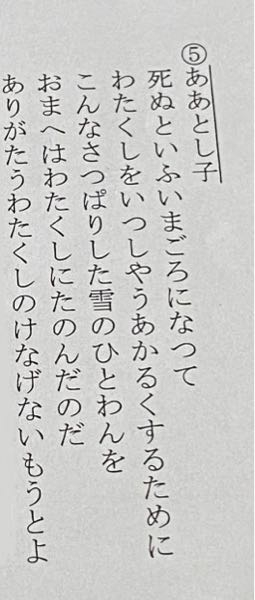 ⑤ああとし子
死ぬといふいまごろになつて
わたくしをいつしやうあかるくするために
こんなさつぱりした雪のひとわんを
おまへはわたくしにたのんだのだ
ありがたうわたくしのけなげないもうとよ